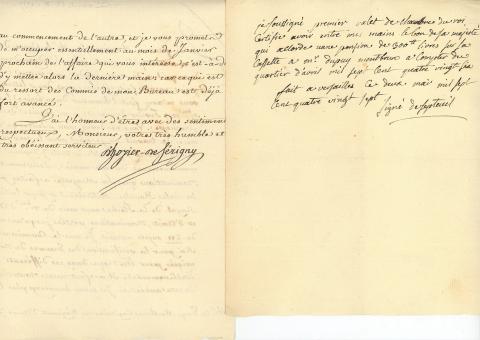 au commencement de l'autre, et je vous promets d
m'occuper essentiellement au mois de Janvier
prochain de l'affaire qui vous intéresse, c'est-à-d
d'y mettre alors la derniere main; car ce qui est
du ressort des Commis de mon Bureau est déjà
fort avancé.
J'ai l'honneur d'être avec des sentimens
respectueux, Monsieur, votre très humble et
très obéissant serviteur
d'hozier de Sérigny
je soussigné premier valet de chambre du roi,
Certifie avoir entre mes mains le bon de sa majesté
qui accorde une pension de 300 livres sur sa
Cassette a mr. dupuy montbrun a Compter du
quartier d'avril mil sept Cent quatre vingt
fait a versailles Ce deux mai mil sept
Cent quatre vingt sept
signé de septeuil